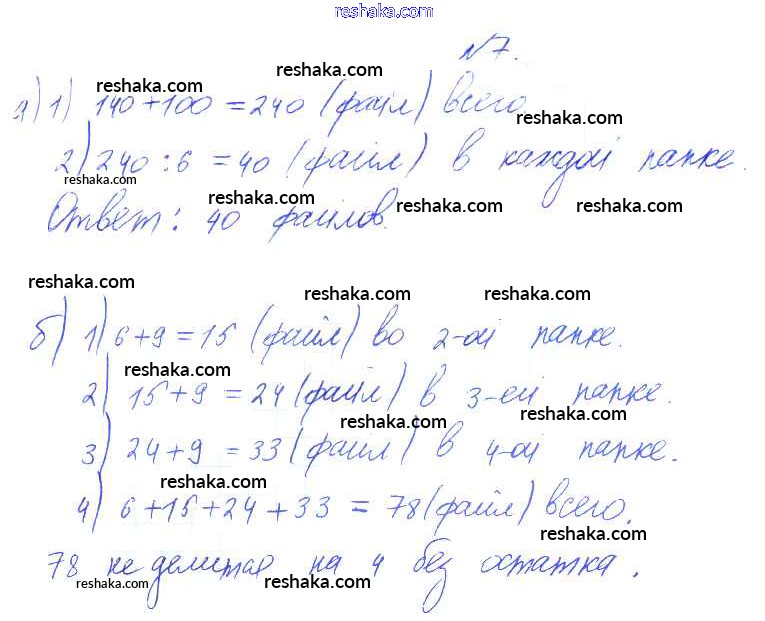 reshaka.com
№7.
reshaka.com
reshaka.com
а) 1) 140 + 100 = 240 (файл) всего
reshaka.com
2) 240 : 6 = 40 (файл) в каждой папке.
reshaka.com
reshaka.com
reshaka.com
reshaka.com
Ответ: 40 файлов.
reshaka.com
reshaka.com
reshaka.com
б) 1) 6+9 = 15 (файл) во 2-ой папке.
reshaka.com
2) 15+9 = 24 (файл) в 3-ей папке.
reshaka.com
reshaka.com
3) 24+9 = 33 (файл) в 4-ой папке.
reshaka.com
4) 6+15+24+33 = 78 (файл) всего.
reshaka.com
78 не делится на 4 без остатка.
reshaka.com
reshaka.com